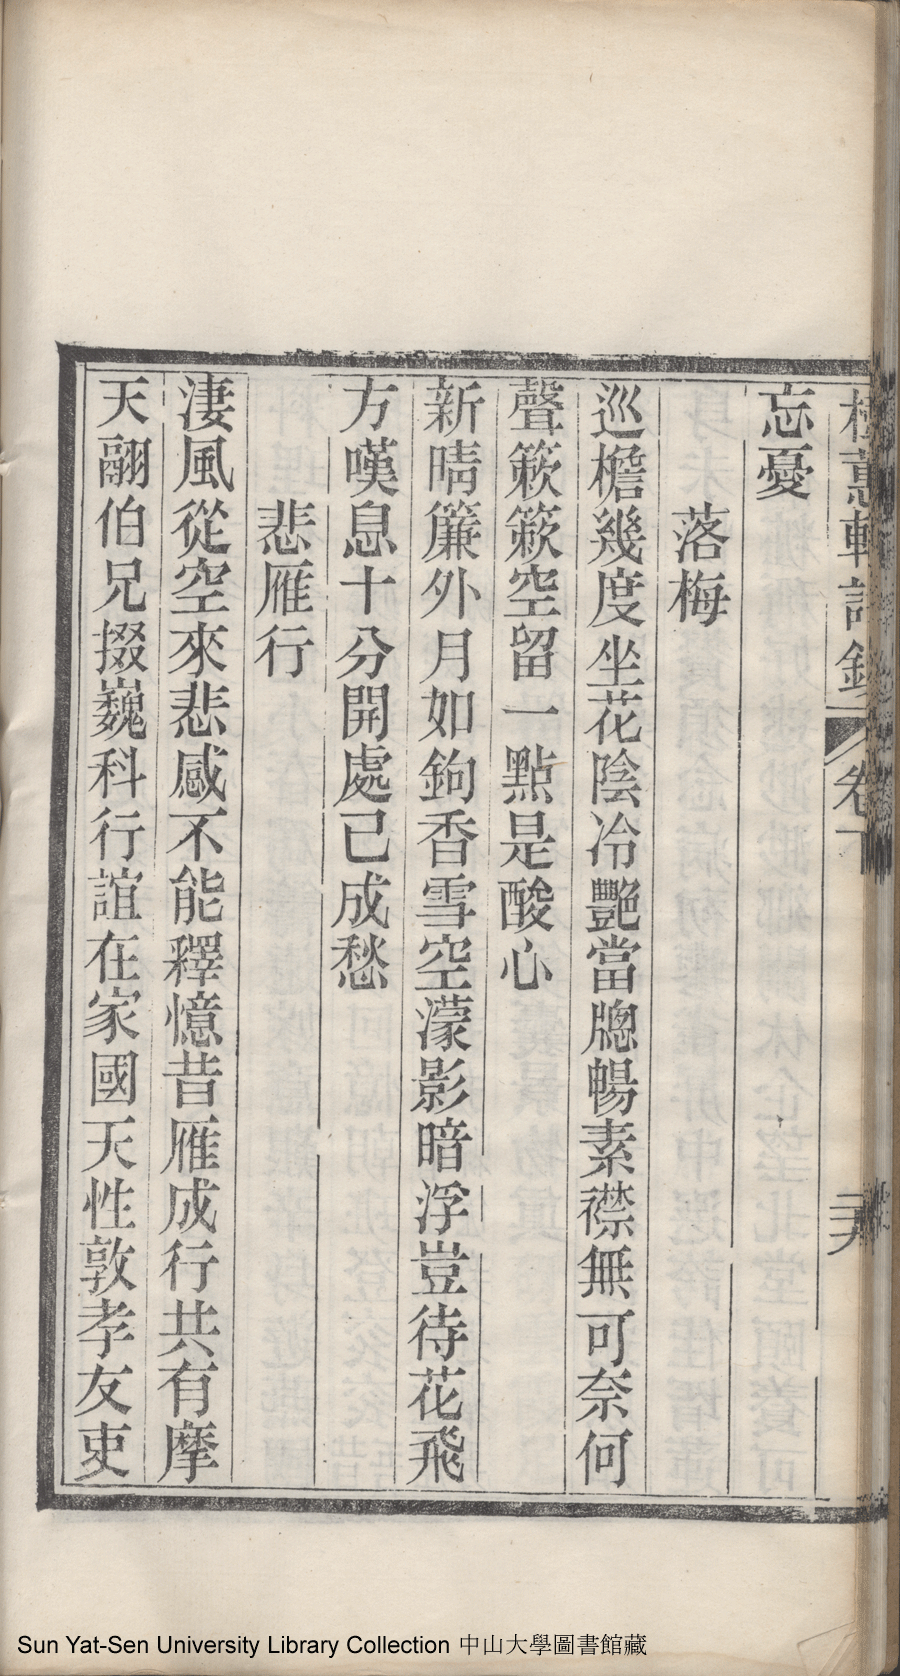 忘憂
落梅
巡檐幾度坐花陰冷艷當牎暢素襟無可奈何
聲簌簌空留一點是酸心
新晴簾外月如鉤香雪空濛影暗浮豈待花飛
方嘆息十分開處已成愁
悲雁行
淒風從空來悲感不能釋憶昔雁成行共有摩
天翮伯兄掇巍科行誼在家國天性敦孝友吏
卷下
Sun Yat-Sen University Library Collection 中山大學圖書館藏